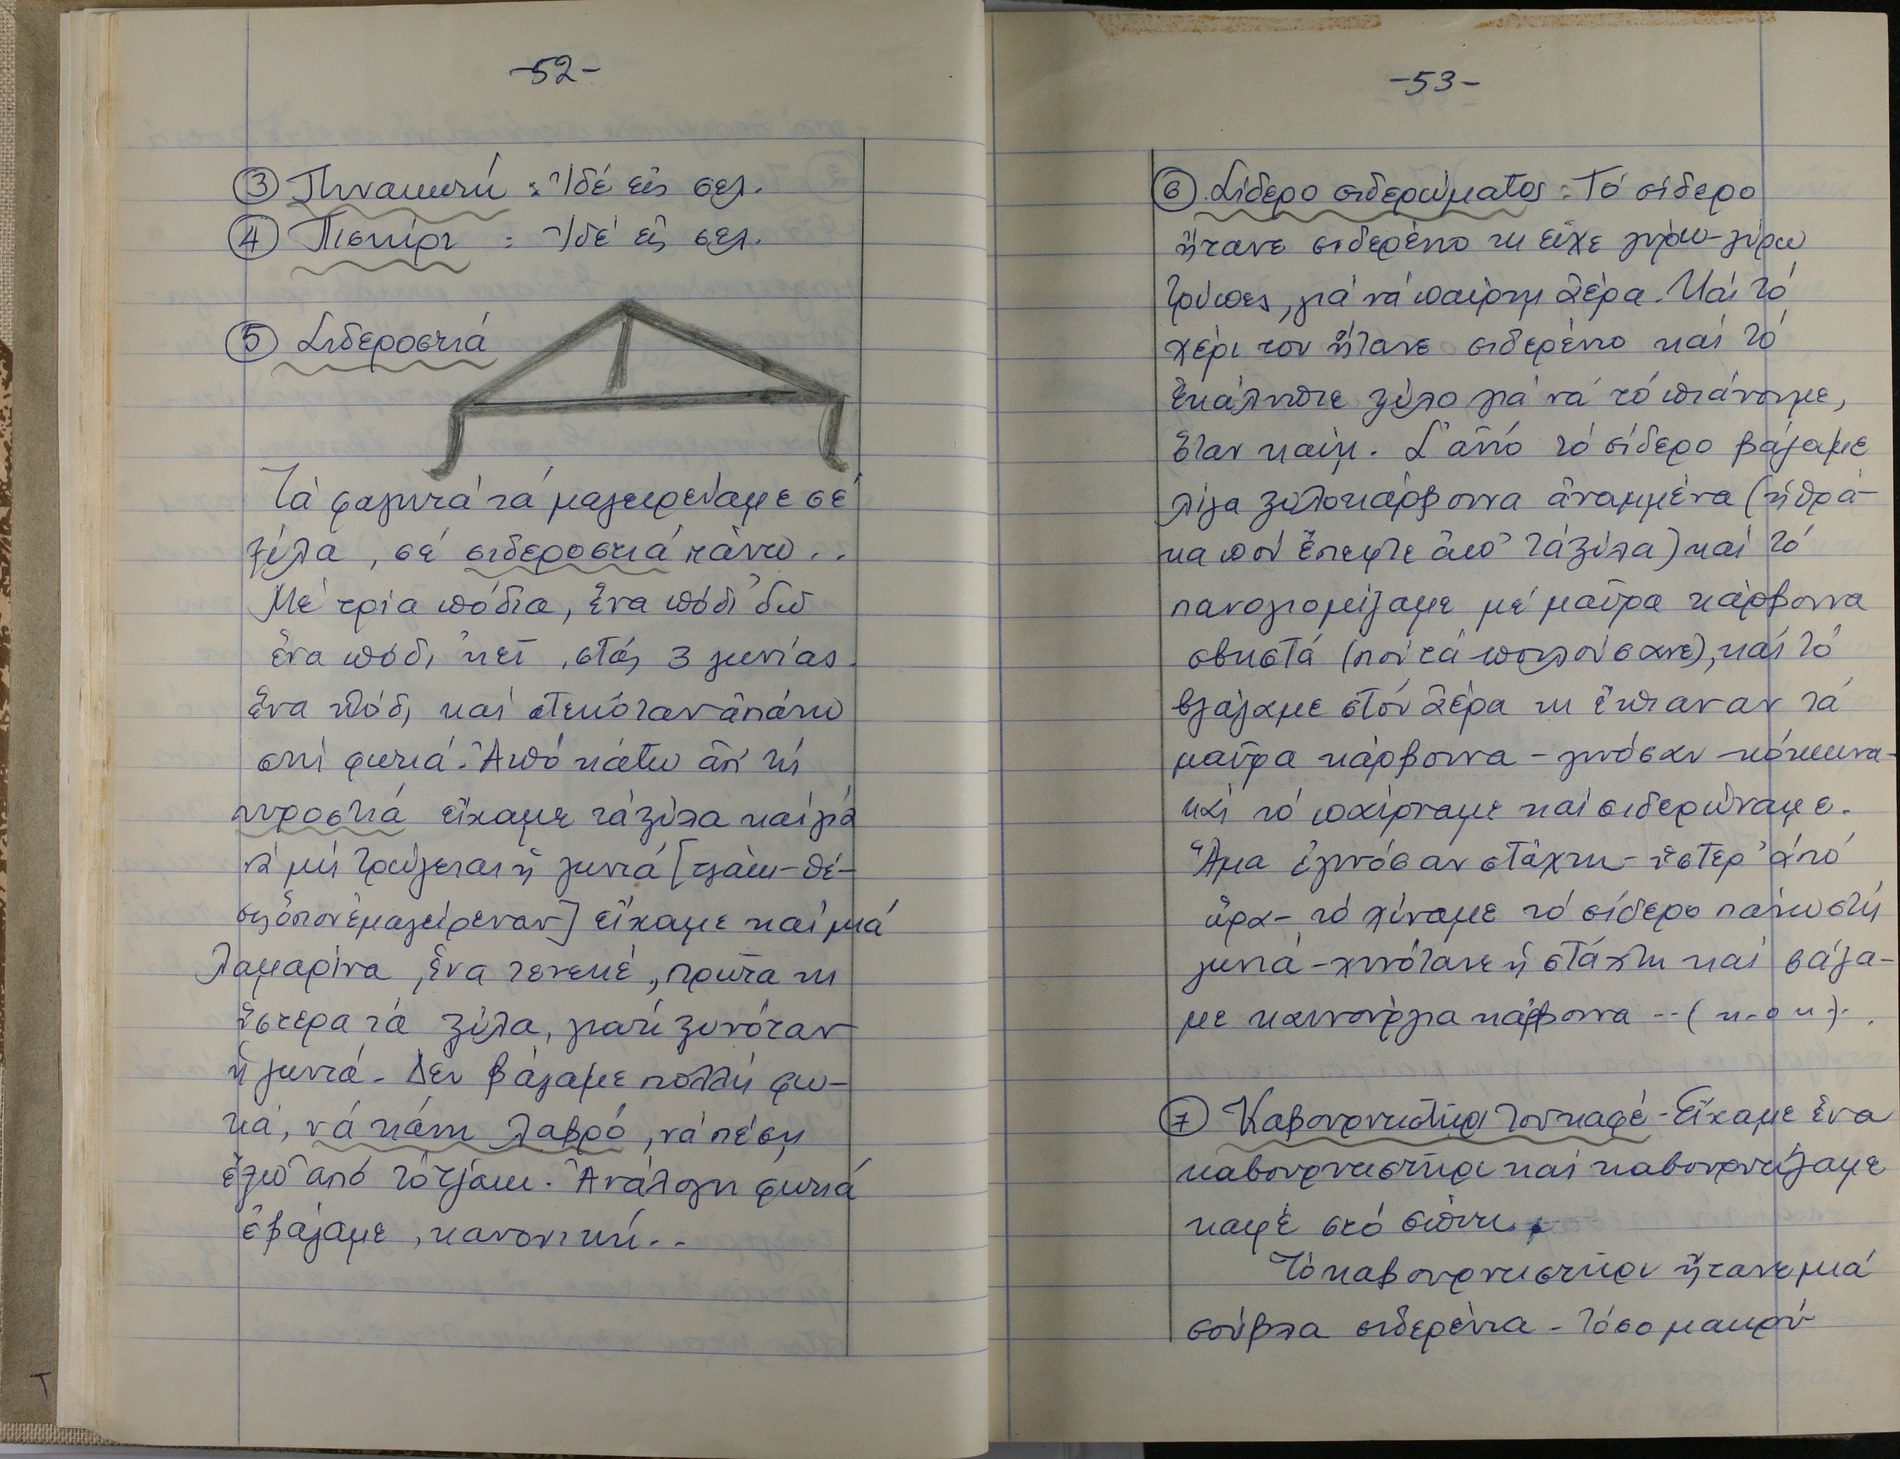 -52-
③ Πινακωτή : Ἰδέ εἰς σελ.
④ Πεσκίρι : Ἰδέ εἰς σελ.
⑤ Σιδεροστιά
Τά φαγητά τά μαγειρεύαμε σέ
ξύλα, σέ σιδεροστιά πάνω..
Μέ τρία πόδια, ἕνα πόδι 'δῶ
ἕνα πόδι 'κεῖ, στάς 3 γωνίας
ἕνα πόδι καί στεκόταν ἀπάνω
στή φωτιά. Ἀπό κάτω ἀπ' τή
πυροστιά εἴχαμε τά ξύλα καί γιά
νά μή τρώγεται ἡ γωνιά [τζάκι-θέ-
ση ὅπου ἐμαγείρευαν] εἴχαμε καί μιά
λαμαρίνα, ἕνα τενεκέ, πρῶτα κι
ὕστερα τά ξύλα, γιατί ξυνόταν
ἡ γωνιά. Δέν βάζαμε πολλή φω-
τιά, νά κάνη λαβρό, νά πέση
ἔξω ἀπό τό τζάκι. Ἀνάλογη φωτιά
ἐβάζαμε, κανονική..
-53-
⑥ Σίδερο σιδερώματος : Τό σίδερο
ἤτανε σιδερένιο κι εἶχε γύρω-γύρω
τρύπες, γιά νά παίρνη ἀέρα. Καί τό
χέρι του ἤτανε σιδερένιο καί τό
ἐκάλυπτε ξύλο γιά νά τό πιάνουμε,
ὅταν καίη. Σ' αὐτό τό σίδερο βάζαμε
λίγα ξυλοκάρβουνα ἀναμμένα (ἡ θρά-
κα πού ἔπεφτε ἀπό τά ξύλα) καί τό
πανογιομίζαμε μέ μαῦρα κάρβουνα
σβηστά (πού τά πουλούσανε), καί τό
βγάζαμε στόν ἀέρα κι ἔπιαναν τά
μαῦρα κάρβουνα - γινόσαν κόκκινα-
καί τό παίρναμε καί σιδερώναμε.
Ἅμα ἐγινόσαν στάχτη - ὕστερ' ἀπό
ὥρα - τό χύναμε τό σίδερο πάνω στή
γωνιά - χυνότανε ἡ στάχτη καί βάζα-
με καινούργια κάρβουνα --( κ.ο.κ ).
⑦ Καβουρντιστῆρι τοῦ καφέ - Εἴχαμε ἕνα
καβουρντιστῆρι καί καβουρντίζαμε
καφέ στό σπίτι.
Τό καβουρντιστῆρι ἤτανε μιά
σούβλα σιδερένια - τόσο μακρύ